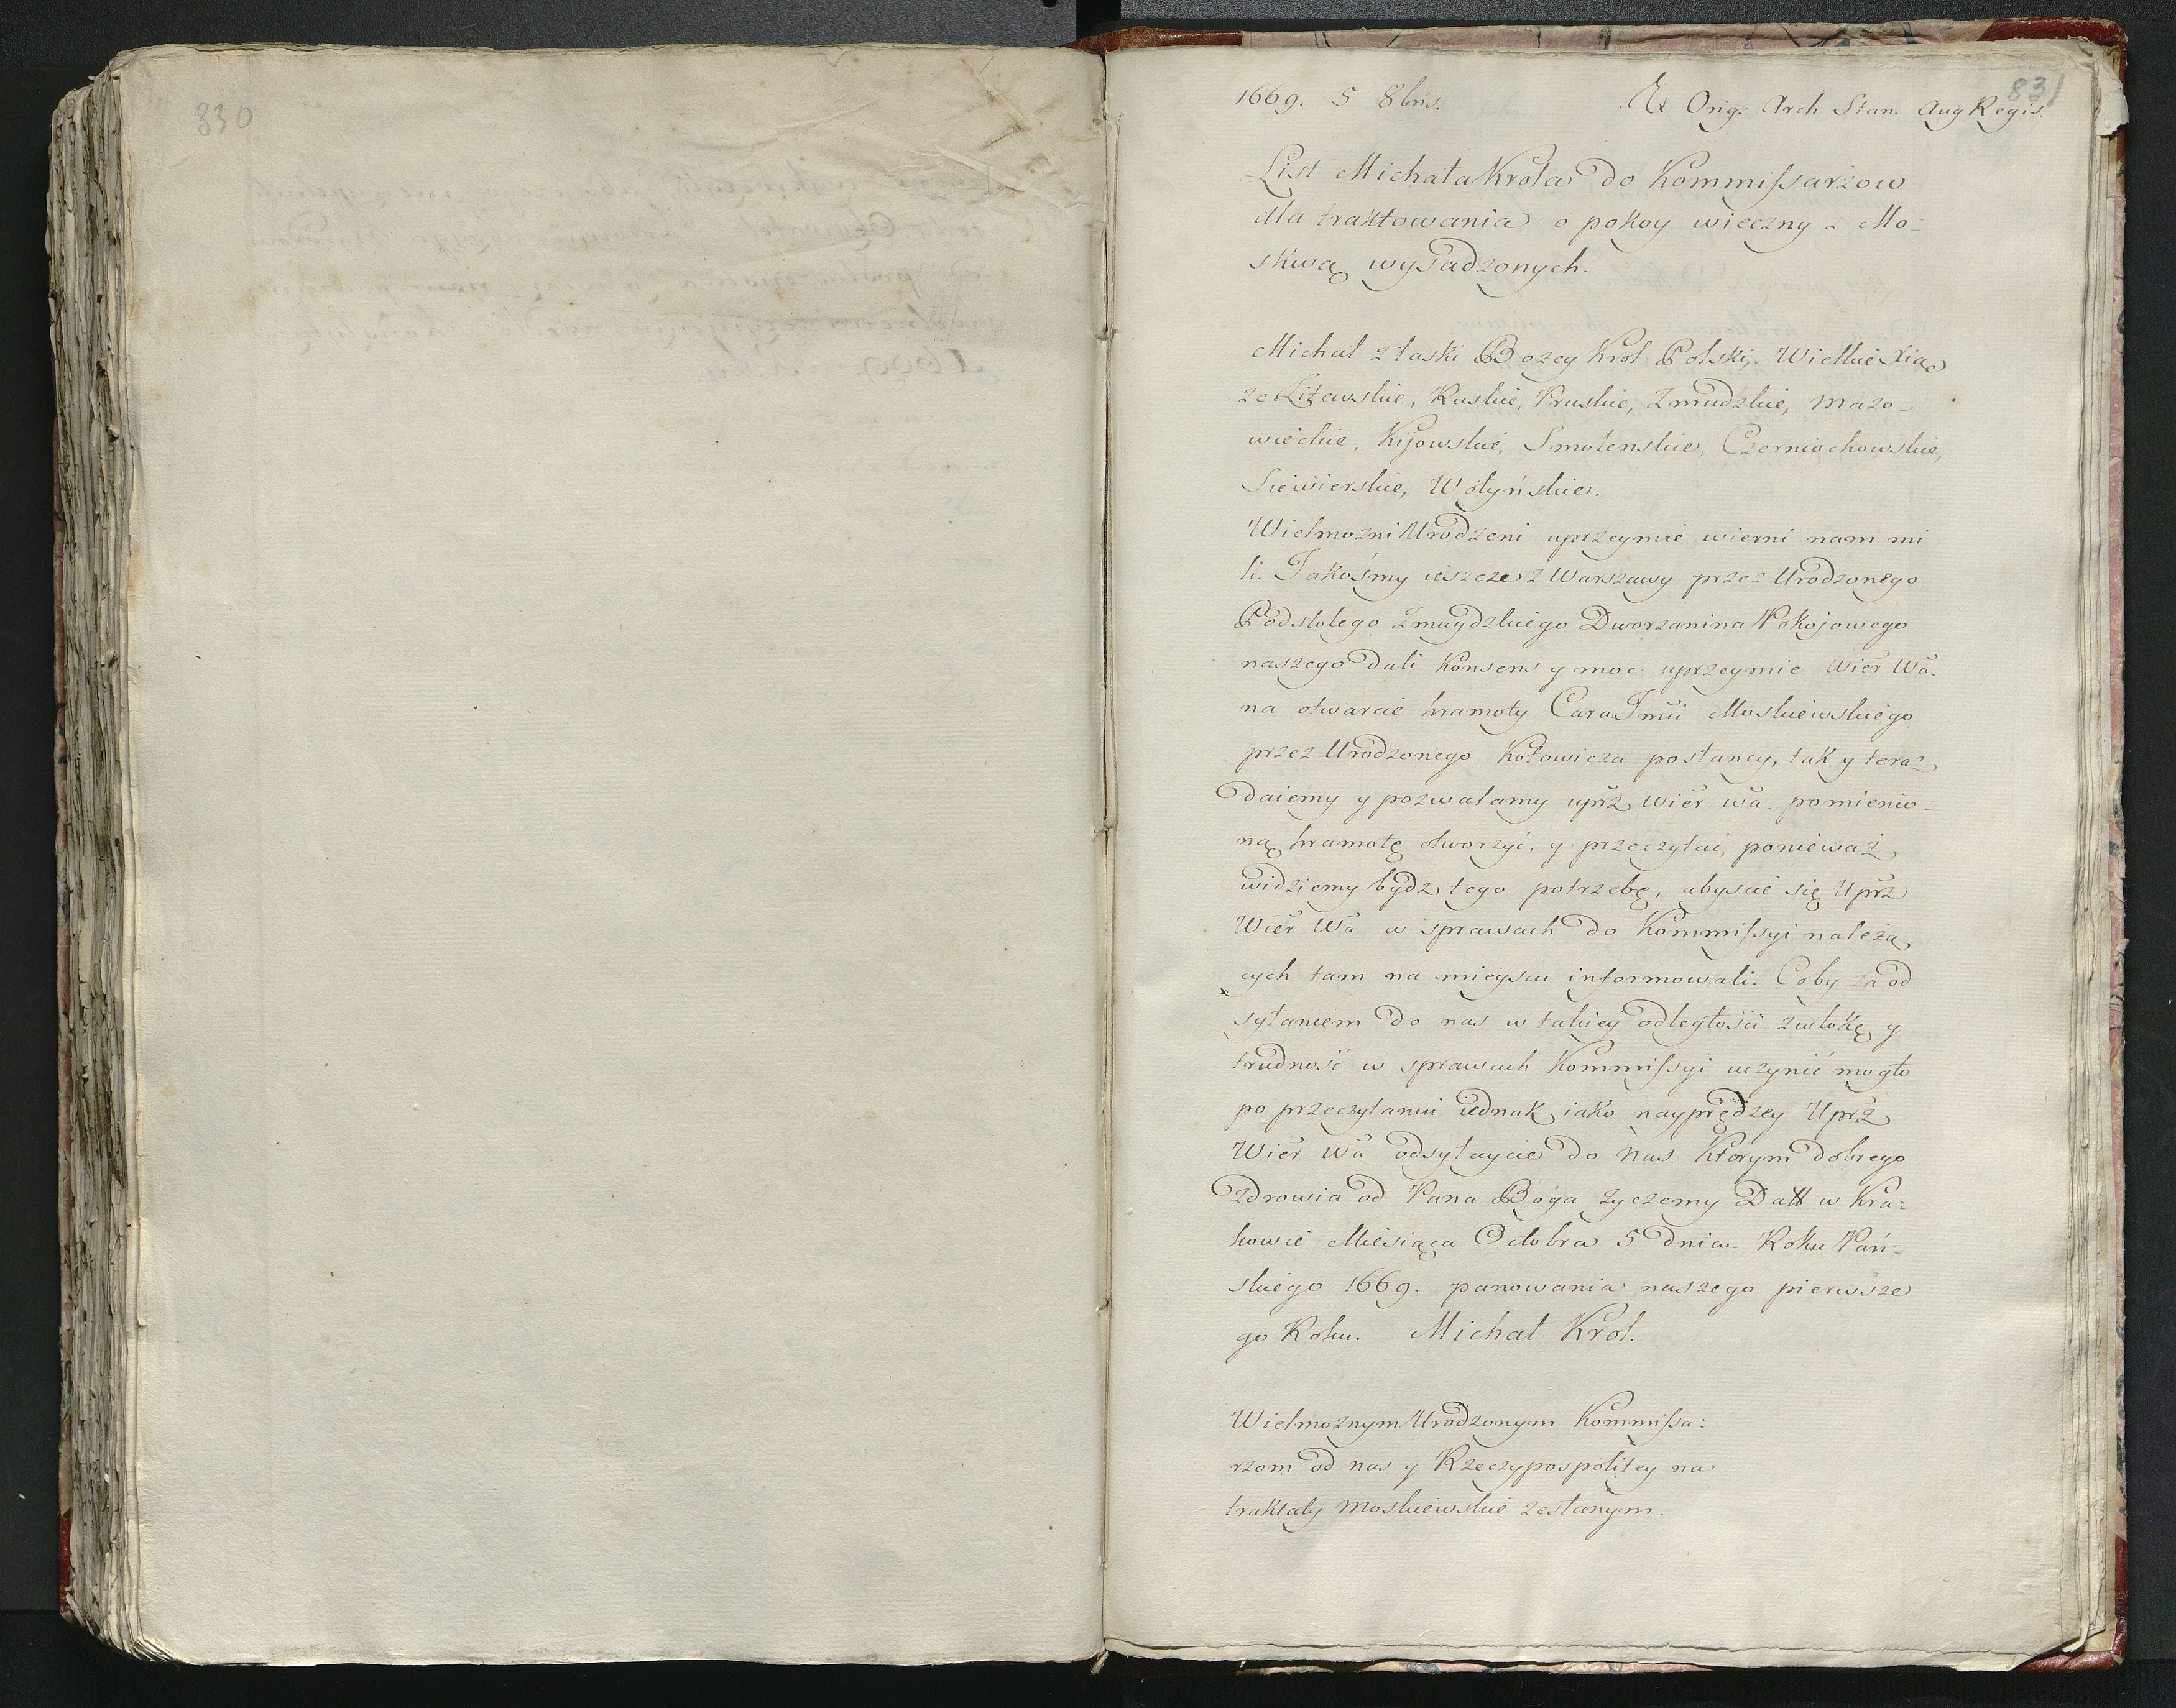 830
831
1669. 5 8bris. Ex Orig: Arch. Stan. Aug Regis.
List Michała Krola do Kommissarzow
dla traktowania o pokoy wieczny z Mo-
skwą wysadzonych.
Michał z łaski Bozey Krol Polski, Wielkie Xią
że Litewskie, Ruskie, Pruskie, Zmudzkie, Mazo-
wieckie, Kijowskie, Smolenskie, Czerniochowskie,
Siewierskie, Wołyńskie.
Wielmożni Urodzeni uprzeymie wierni nam mi
li. Jakośmy ieszcze z Warszawy przez Urodzonego
Podstolego Zmuydzkiego Dworzanina Pokojowego
naszego dali Konsens y moc uprzeymie Wier Wa.
na otwarcie hramoty Cara Jmci Moskiewskiego
przez Urodzonego Kotowicza posłancy, tak y teraz
daiemy y pozwalamy uprz Wier wa. pomienio-
ną hramotę otworzyć, y przeczytać, ponieważ
widziemy bydz tego potrzebę, abyscie się Uprz
Wier Wa w sprawach do Kommissyi należą
cych tam na mieyscu informowali. Coby za od
syłaniem do nas w takiey odległości zwłokę y
trudność w sprawach Kommissyi uczynić mogło
po przeczytaniu iednak iako nayprędzey Uprz
Wier Wa odsyłaycie do nas. Ktorym dobrego
zdrowia od Pana Boga życzemy Datt w Kra-
kowie Miesiąca Octobra 5 dnia. Roku Pań-
skiego 1669. panowania naszego pierwsze
go Roku. Michał Krol.
Wielmoznym Urodzonym Kommissa:
rzom od nas y Rzeczypospolitey na
traktaty Moskiewskie zesłanym.